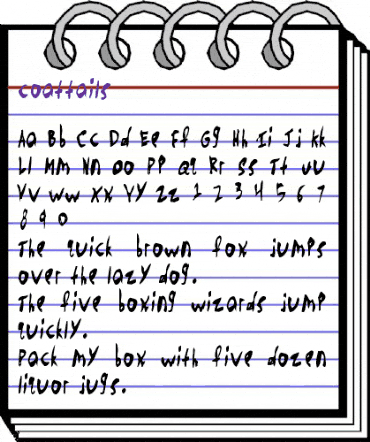 coattails
Aa Bb Cc Dd Ee Ff Gg Hh Ii Jj Kk
Ll Mm Nn Oo Pp Qq Rr Ss Tt Uu
Vv Ww Xx Yy Zz 1 2 3 4 5 6 7
8 9 0
The quick brown fox jumps
over the lazy dog.
The five boxing wizards jump
quickly.
Pack my box with five dozen
liquor jugs.